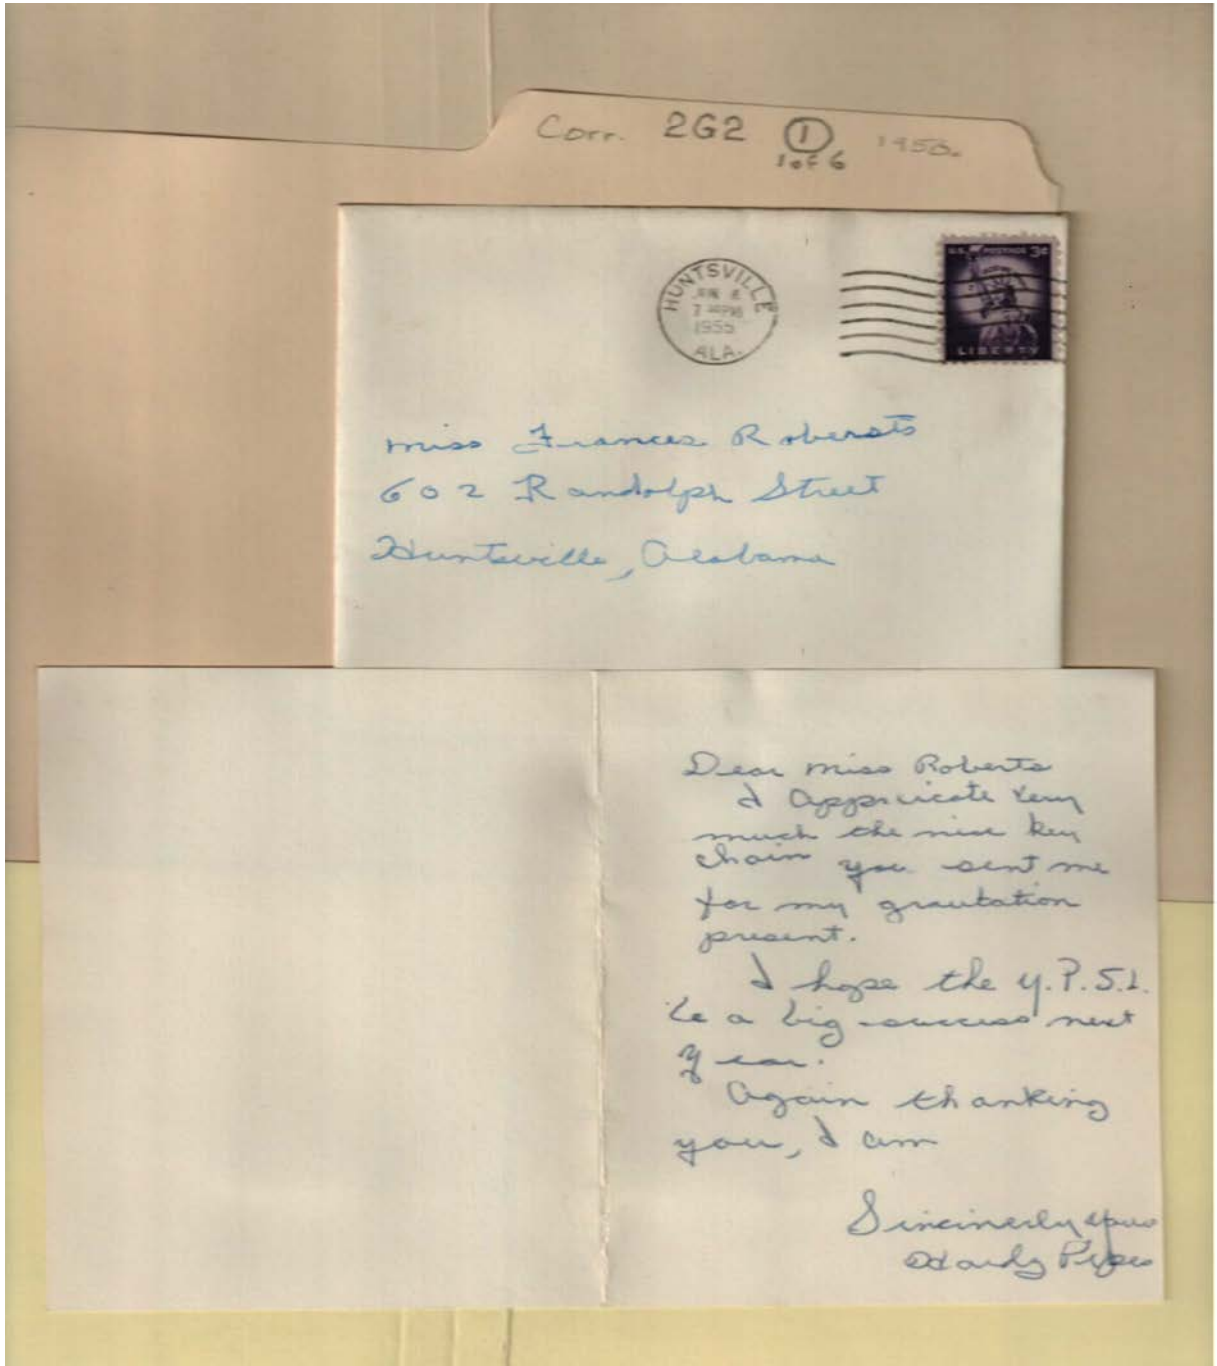 Corr. 2G2 1 1956.
1 of 6
U.S. POSTAGE 3¢
HUNTSVILLE
7 PM
1955
ALA.
LIBERTY
Miss Frances Robersts
602 Randolph Street
Huntsville, Alabama
Dear Miss Roberts
I Appricicate very
much the nice key
chain you sent me
for my grautation
present.
I hope the Y.P.S.L.
be a big success next
year.
Again thanking
you, I am
Sincinerly yours
Hardy Pipes